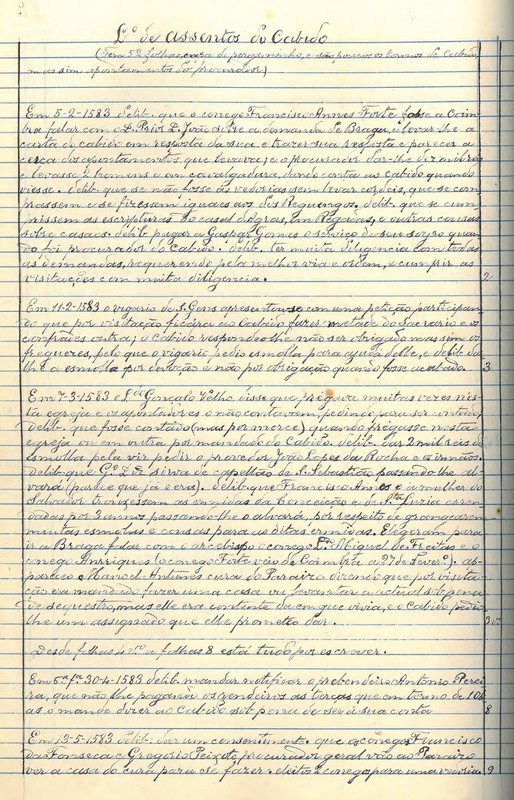 L.º de assentos do Cabido
(Tem 52 folhas, capa de pergaminho, e são poucos os termos do Cabido,
mas sim apontamentos do procurador)
Em 5-2-1583 delib. que o conego Francisco Annes Forte fosse a Coim-
bra falar com o D. Prior D. João sobre a demanda de Braga, e levar-lhe a
carta do cabido em resposta da sua, e trazer sua resposta e parecer a
cerca dos apontamentos que levava; e o procurador dar-lhe dez mil reis
e levasse 2 homens e um cavalgadura, dando conta ao Cabido quando
viesse. delib. que se não fosse ás vedorias sem levar cordeis, que se com-
prassem e se fizessem iguaes aos dos Reguengos. delib. que se cum-
prissem as escripturas do casal d'Ogras, em Regadas, e outras cousas
sobre casaes. delib. pagar a Gaspar Gomes o serviço do seu sogro quan-
do foi procurador do Cabido. delib. ter muita diligencia com todas
as demandas, requerendo pela melhor via e ordem, e cumprir as
visitações em muita diligencia. 2
Em 11-2-1583 o vigario de S. Gens apresentou-se com uma petição participan-
do que por visitação ficára ao Cabido fazer metade do Sacrario e os
confrades outra; o Cabido respondeo-lhe não ser obrigado mas sim os
freguezes, pelo que o vigario pedio esmolla para ajuda delle, e delib. dar-
lhe a esmolla por devoção e não por obrigação quando fosse acabado. 3
Em 7-3-1583 o L.do Gonçalo Velho disse que prégava muitas vezes nes-
ta egreja e os apontadores o não contavam, pedindo para ser contado,
delib. que fosse contado (mas por merce) quando prégasse nesta
egreja ou em outra por mandado do Cabido. delib. dar 2 mil reis de
esmolla pela vir pedir o provedor João Lopes da Rocha e os irmãos.
delib. que G.º L. sirva de capellão de S. Sebastião passando-lhe al-
vará (parece que já era). delib. que Francisco Annes e a mulher do
Salvador trouxessem as ermidas da Conceição e de Sta Luzia arren-
dadas por 3 annos passando-lhe o alvará, por respeito de grangearem
muitas esmolas e cousas para as ditas ermidas. Elegeram para
ir a Braga falar com o arcebispo o conego Miguel de Freitas e o
conego Anrriques (o conego Forte veio de Coimbra a 27 de Fever.º). ap-
pareceo Manoel Antunes cura do Paraizo dizendo que por visita-
ção era mandado fazer uma casa ou levantar a actual sob pena
de sequestro, mas elle era contente da em que vivia, e o Cabido pedio-
lhe um assignado que elle prometeo dar. 3v.º
Desde folhas 4 v.º a folhas 8 está tudo por escrever.
Em 6.ª f.ra 30-4-1583 delib. mandar notificar o prebendeiro Antonio Perei-
ra, que não lhe pagando os rendeiros as terças que em termo de 10 di-
as o mande dizer ao Cabido sob pena de ser á sua conta 8
Em 13-5-1583 delib. dar um consentiment. que os cónegos Francisco
da Fonseca e Gregorio Peixoto procurador geral vão ao Paraizo
ver a casa do cura para se fazer. eleitos 2 conegos para uma vedoria 9